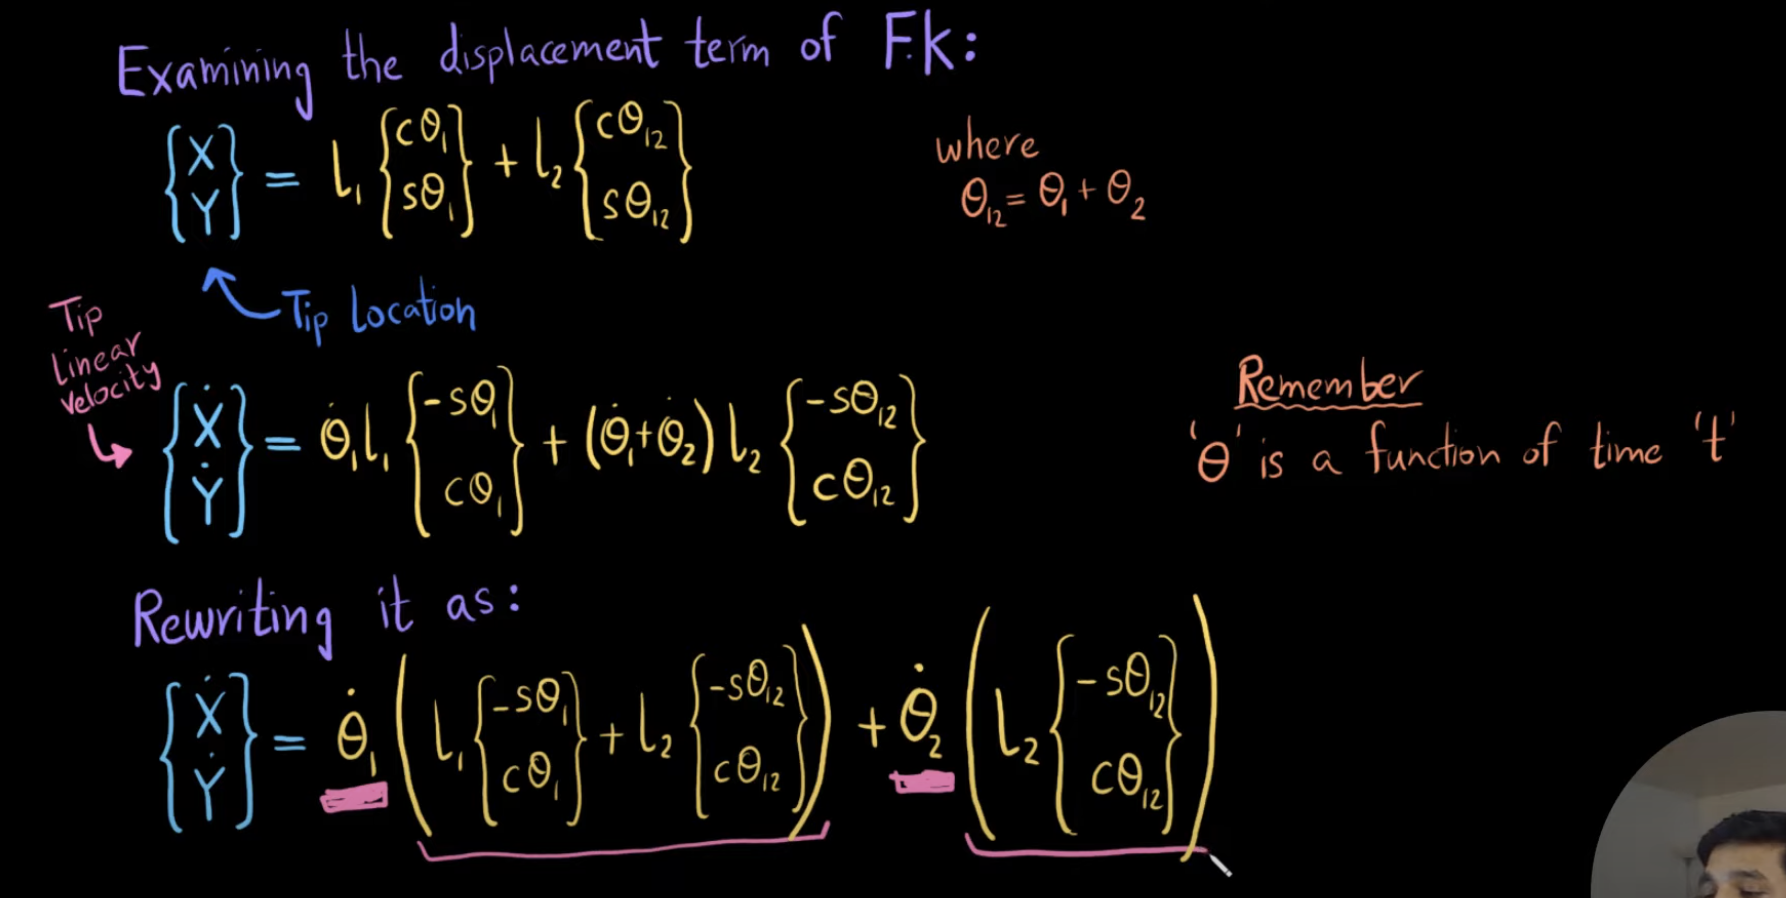 Examining the displacement term of F.K:
{X Y} = l₁ {cθ₁ sθ₁} + l₂ {cθ₁₂ sθ₁₂}
where
θ₁₂ = θ₁ + θ₂
Tip Location
Tip
Linear
velocity
{Ẋ Ẏ} = θ̇₁l₁ {-sθ₁ cθ₁} + (θ̇₁+θ̇₂) l₂ {-sθ₁₂ cθ₁₂}
Remember
'θ' is a function of time 't'
Rewriting it as:
{Ẋ Ẏ} = θ̇₁ (l₁ {-sθ₁ cθ₁} + l₂ {-sθ₁₂ cθ₁₂}) + θ̇₂ (l₂ {-sθ₁₂ cθ₁₂})